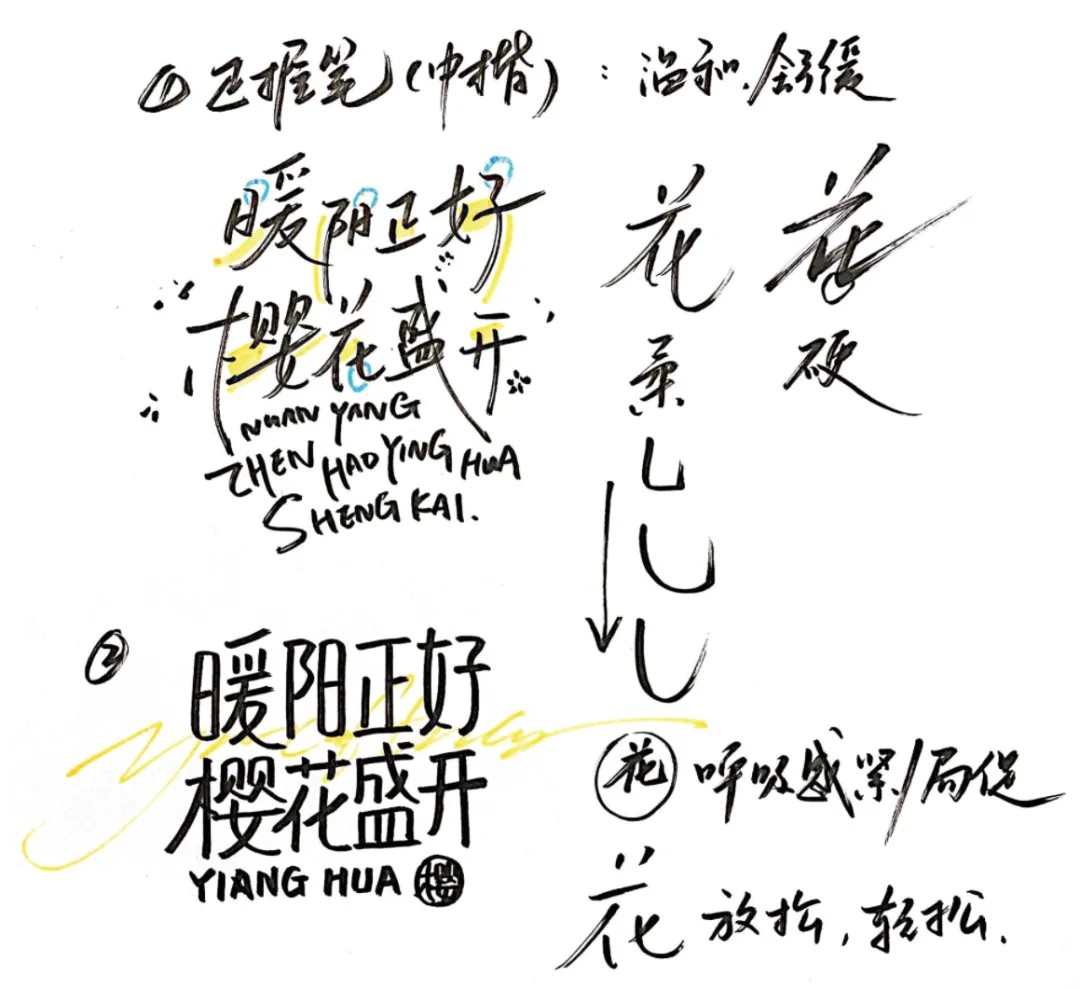 ① 正握笔(中楷):温和.舒缓
暖阳正好
樱花盛开
NUAN YANG
ZHEN HAO YING HUA
SHENG KAI.
花 花
柔 硬
② 暖阳正好
樱花盛开
YIANG HUA 樱
花 呼吸感紧/局促
花 放松,轻松.